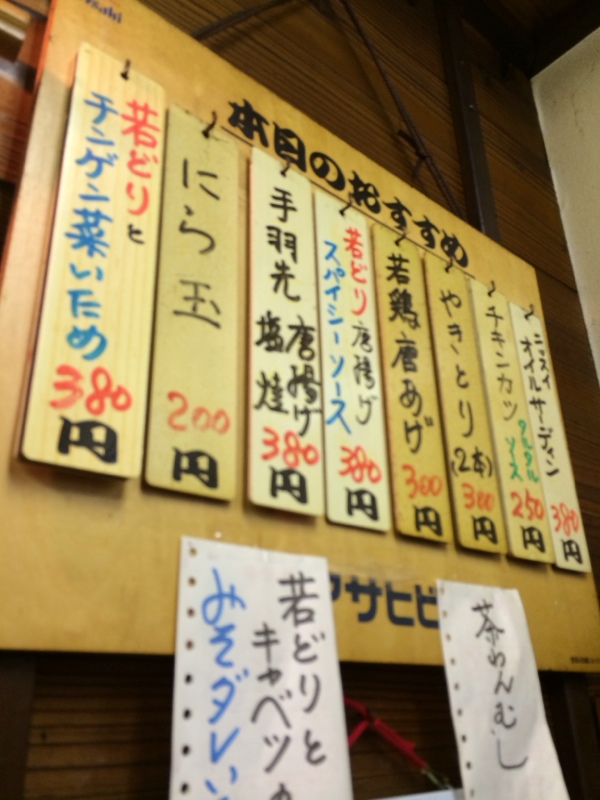 本日のおすすめ
若どりと
チンゲン菜いため
380
円
にら玉
200
円
手羽先
唐揚げ
塩焼
380
円
若どり唐揚げ
スパイシーソース
380
円
若鶏唐あげ
300
円
やきとり(2本)
300
円
チキンカツ
タルタル
ソース
250
円
ニッスイ
オイルサーディン
380
円
アサヒビ
若どりと
キャベツの
みそダレい
茶わんむし